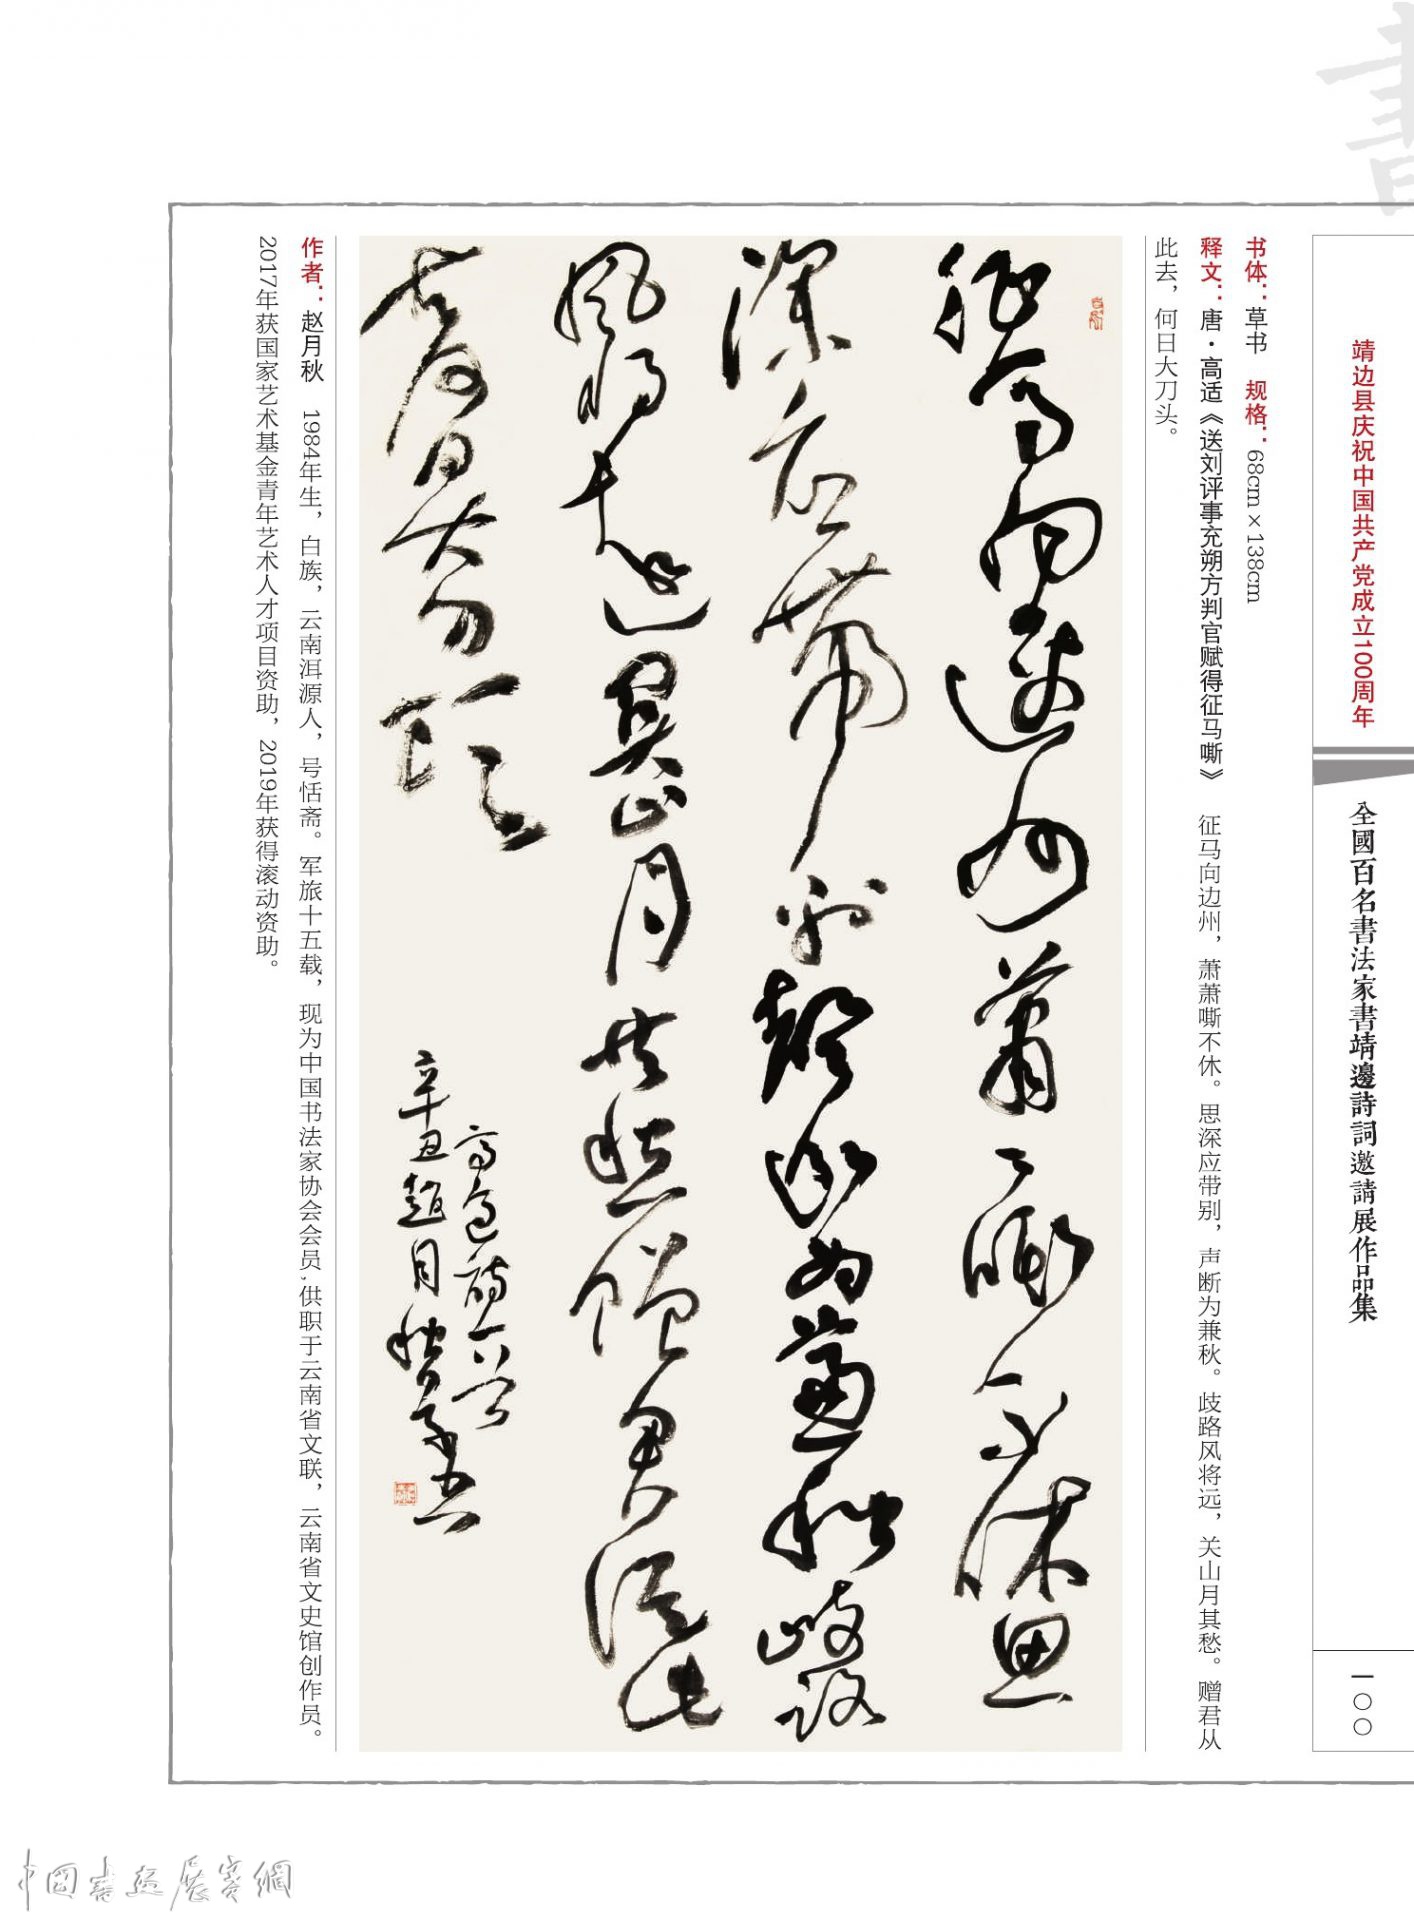 書
靖边县庆祝中国共产党成立100周年
全國百名書法家書靖邊詩詞邀請展作品集
一〇〇
书体：草书 规格：68cm×138cm
释文：唐·高适《送刘评事充朔方判官赋得征马嘶》 征马向边州，萧萧嘶不休。思深应带别，声断为兼秋。歧路风将远，关山月其愁。赠君从
此去，何日大刀头。
征馬向邊州蕭〻嘶不休思
深應帶別聲斷为蕙秋歧路
風將遠關山月共愁贈君從此
去何日大刀頭
高適詩一首
辛丑趙月秋
作者：赵月秋 1984年生，白族，云南洱源人，号恬斋。军旅十五载，现为中国书法家协会会员,供职于云南省文联，云南省文史馆创作员。
2017年获国家艺术基金青年艺术人才项目资助，2019年获得滚动资助。
中國書畫展賽網